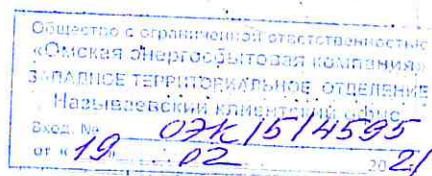 Общество с ограниченной ответственностью
«Омская энергосбытовая компания»
ЗАПАДНОЕ ТЕРРИТОРИАЛЬНОЕ ОТДЕЛЕНИЕ
Называевский клиентский офис
Вход. № ОЭК/5/4595
от «19» 02 2021